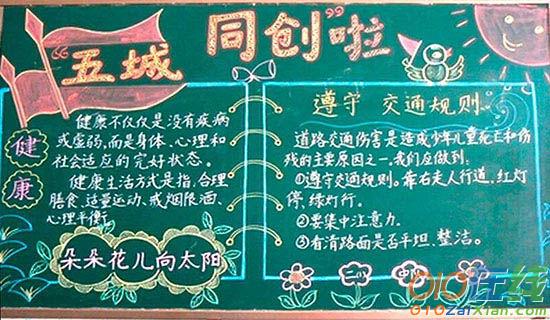 “五城同创”啦
健康
健康不仅仅是没有疾病
或虚弱,而是身体、心理和
社会适应的完好状态。
健康生活方式是指,合理
膳食、适量运动、戒烟限酒、
心理平衡。
朵朵花儿向太阳
遵守 交通规则
道路交通伤害是造成少年儿童死亡和伤
残的主要原因之一。我们应做到:
①遵守交通规则。靠右走人行道,红灯
停,绿灯行。
②要集中注意力。
③看清路面是否平坦、整洁。
二(1)中队
010在线
010zaixian.com